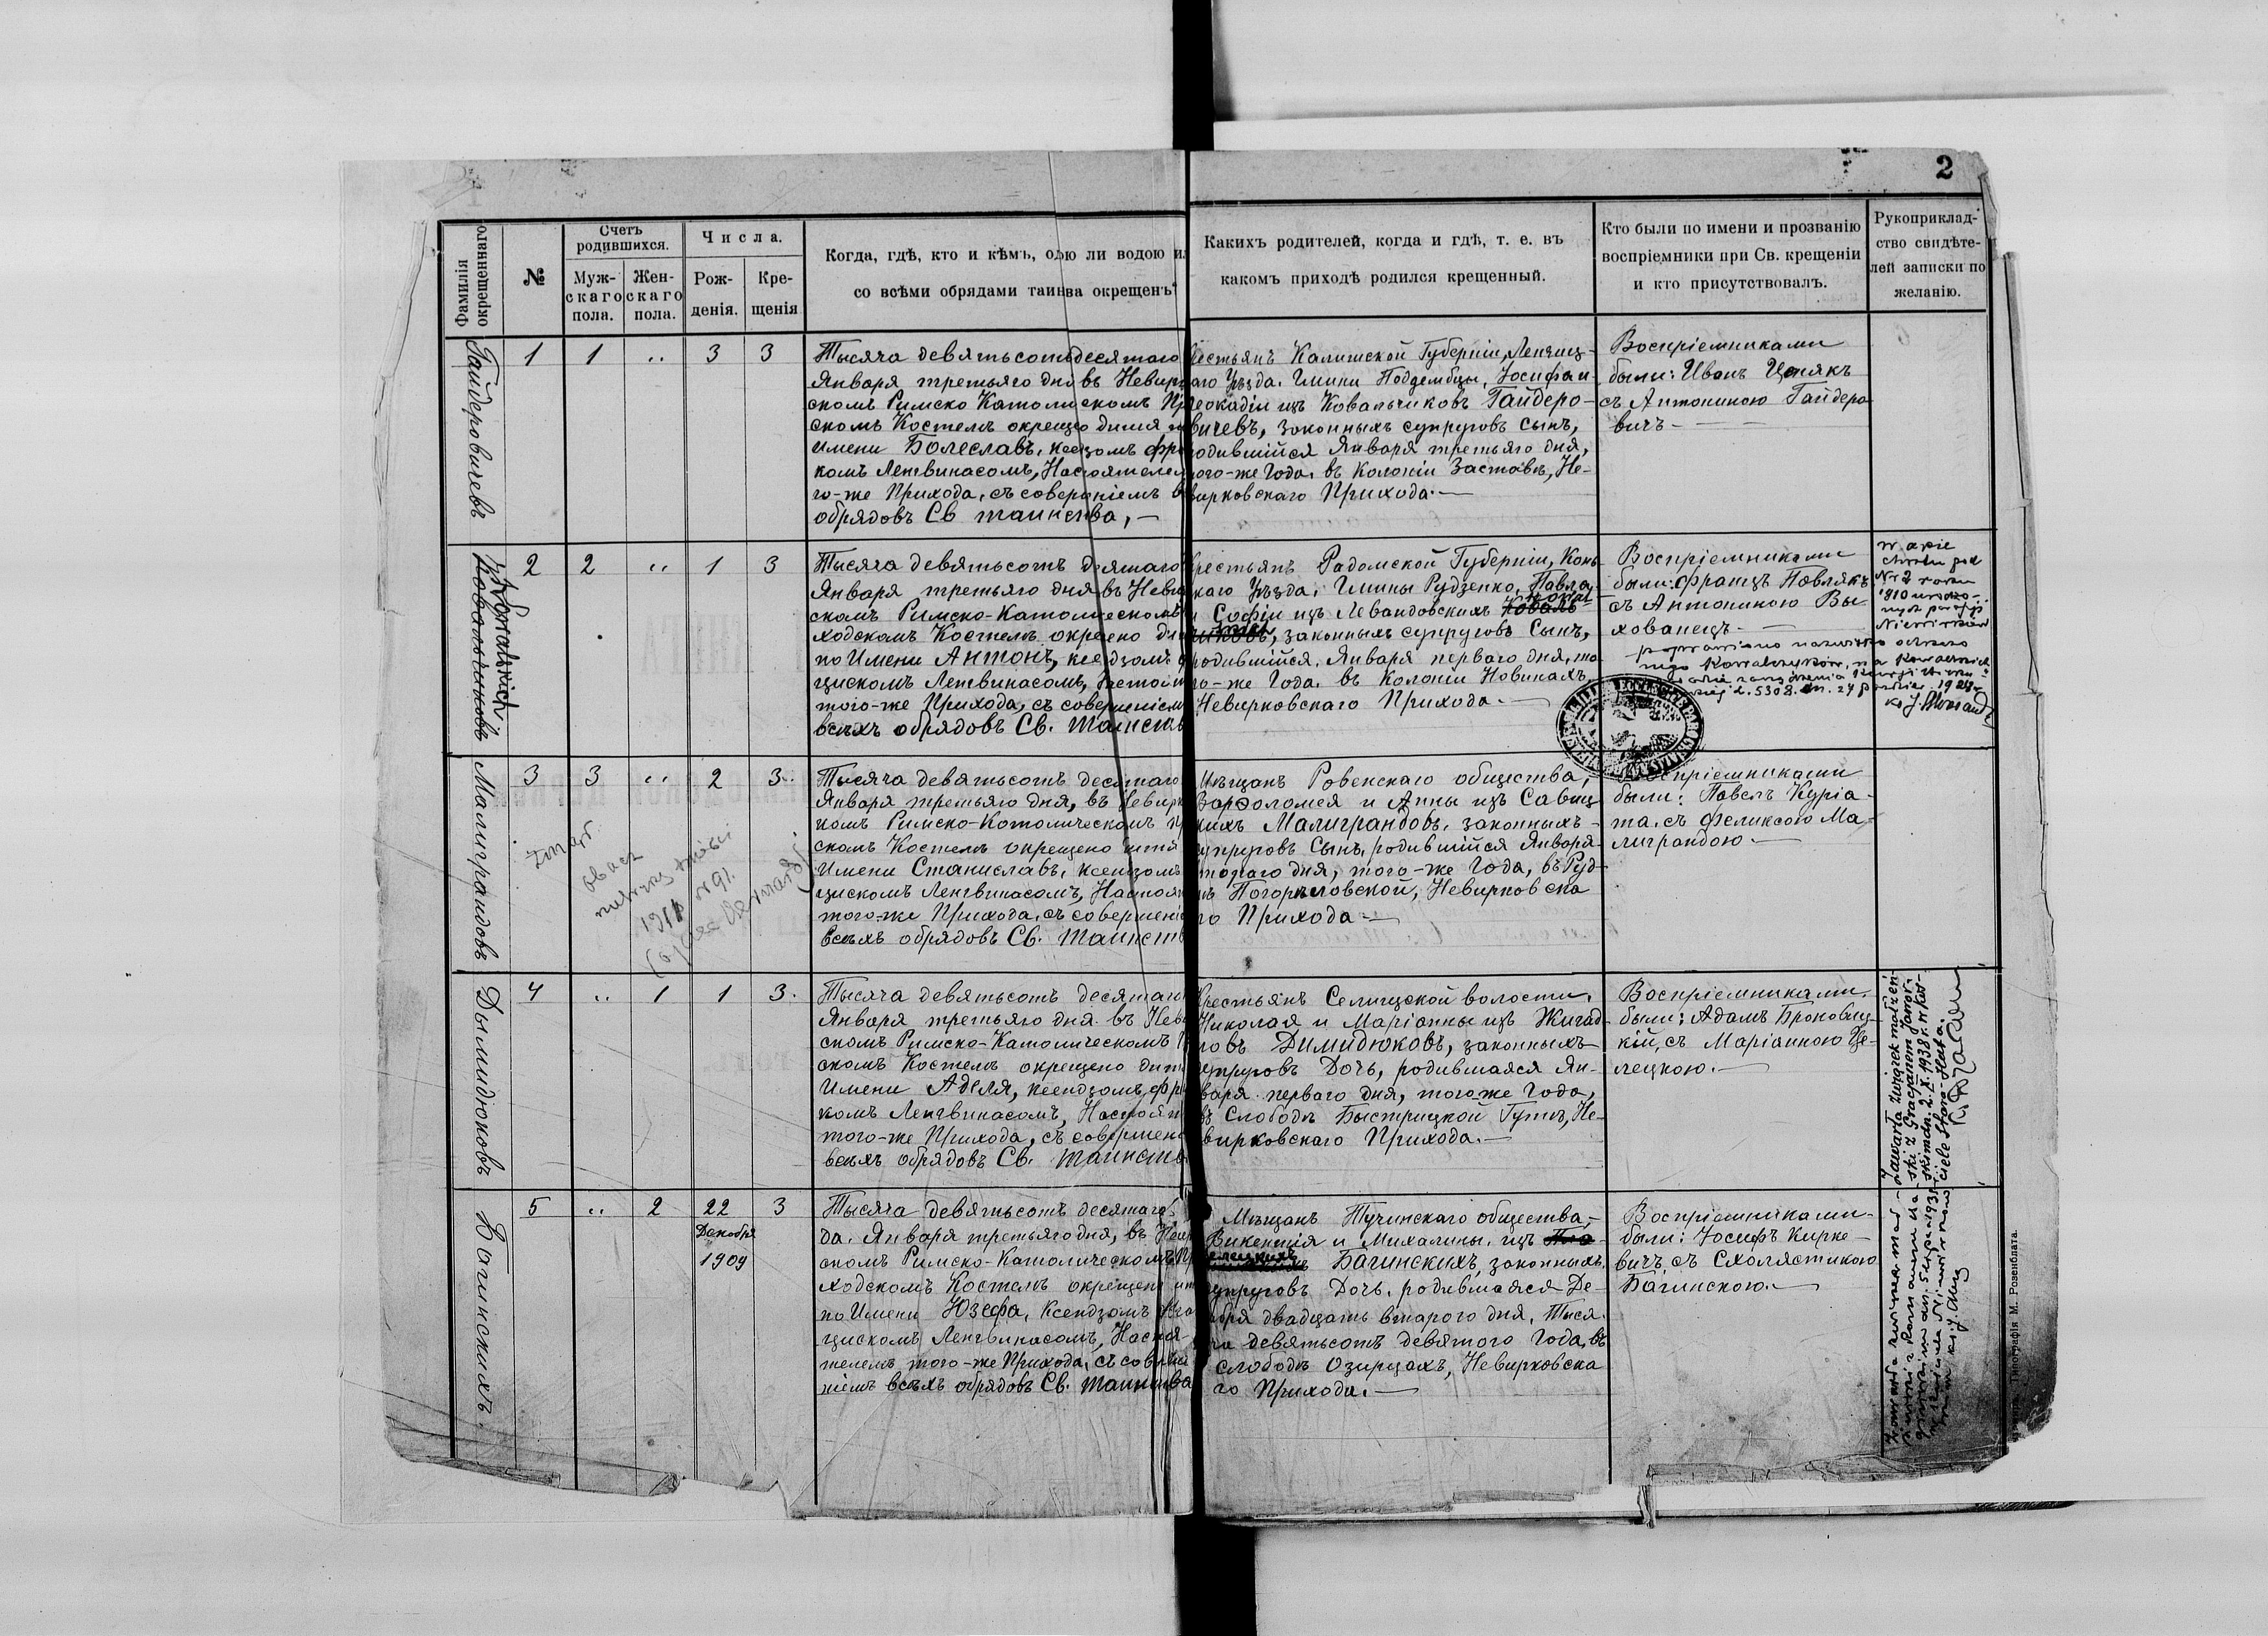 2
Фамилія окрещеннаго
№
Счетъ родившихся.
Муж-
скаго
пола.
Жен-
скаго
пола.
Числа.
Рож-
денія.
Кре-
щенія
Когда, гдѣ, кто и кѣмъ, одою ли водою и
со всѣми обрядами таинва окрещенъ
Какихъ родителей, когда и гдѣ, т. е. въ
какомъ приходѣ родился крещенный.
Кто были по имени и прозванію
воспріемники при Св. крещеніи
и кто присутствовалъ.
Рукоприклад-
ство свидѣте-
лей записки по
желанію.
Гайдеровичевъ
1 1 „ 3 3
Тысяча девятьсотъ десятаго
Января третьяго дня въ Невирк
скомъ Римско Католическомъ Пр
скомъ Костелѣ окрещено дитя
имени Болеславъ, ксендзомъ Фра
комъ Ленгвинасомъ, Настоятелем
го-же Прихода, съ совершеніемъ в
обрядовъ Св таинства, —
рестьянъ Калишской Губерніи, Ленчиц-
аго Уѣзда. Гмины Поддембцы, Іосифа и
Леокадіи изъ Ковальчиковъ Гайдеро-
вичевъ, законныхъ супруговъ сынъ,
родившійся Января третьяго дня,
того-же Года. въ Колоніи Заставѣ, Не-
вирковскаго Прихода. —
Воспріемниками
были: Иванъ Ценякъ
съ Антониною Гайдеро-
вичъ —
Ковальчиковъ
Kowalskich
2 2 „ 1 3
Тысяча девятьсотъ десятаго
Января третьяго дня въ Неви
скомъ Римско-Католическомъ
ходскомъ Костелѣ окрещено ди
по Имени Антонъ, ксендзомъ
цискомъ Ленгвинасомъ, Настоят
того-же Прихода, съ совершеніем
всѣхъ обрядовъ Св. таинств
Крестьянъ Радомской Губерніи, Конь-
каго Уѣзда, Гмины Рудзенко, Павла
и Софіи изъ Левандовскихъ Коваль-
чиковъ, законныхъ супруговъ Сынъ,
родившійся, Января перваго дня, то-
го-же Года. въ Колоніи Новинахъ,
Невирковскаго Прихода. —
Воспріемниками
были: Францъ Павлякъ
съ Антониною Вы-
хованецъ —
w akcie
chrztu pod
Nr 2 roku
1910
poprawiono nazwisko
nego Kowalczyków, na Kowalskich
zarządzenia Kurji
L. 5308. dn. 24
Малиграндовъ
3 3 „ 2 3
Тысяча девятьсотъ десятаго
Января третьяго дня, въ Невирк
комъ Римско-Католическомъ П
скомъ Костелѣ окрещено дитя
Имени Станиславъ, ксендзомъ
цискомъ Ленгвинасомъ, Настоят
того-же Прихода, съ совершені
всѣхъ обрядовъ Св. таинств
Мѣщанъ Ровенскаго общества,
Варѳоломея и Анны изъ Савиц-
кихъ Малиграндовъ, законныхъ
супруговъ Сынъ, родившійся Января
втораго дня, того-же Года, въ Руд-
нѣ Погорѣловской, Невирковска
го Прихода —
Воспріемниками
были: Павелъ Куріа-
та, съ Феликсою Ма-
лиграндою. —
Дымидюковъ
4 „ 1 1 3.
Тысяча девятьсотъ десятаго
Января третьяго дня въ Неви
скомъ Римско-Католическомъ
скомъ Костелѣ окрещено дитя
Имени Аделя, ксендзомъ Фра
комъ Ленгвинасомъ, Настоят
того-же Прихода, съ совершен
всѣхъ обрядовъ Св. таинства
Крестьянъ Селищской волости,
Николая и Маріанны изъ Жигад-
ловъ Димидюковъ, законныхъ
супруговъ Дочь, родившаяся Ян-
варя перваго дня, того же Года,
въ Слободѣ Быстрицкой Гутѣ, Не-
вирковскаго Прихода. —
Воспріемниками
были; Адамъ Броковиц-
кій, съ Маріанною Це-
лецкою. —
Zawarła związek małżeń-
ski z Gracjanem Jawor-
skim dn. 2. X. 1938 r. w koś-
ciele Stara-Huta.
Багинскихъ
5 „ 2 22 3
Декабря
1909
Тысяча девятьсотъ десятаго
да. Января третьяго дня, въ Невир
скомъ Римско-Католическомъ Пр
ходскомъ Костелѣ окрещено дит
по Имени Юзефа, Ксендзомъ Фра
цискомъ Ленгвинасомъ, Настоя-
телемъ того-же Прихода, съ соверше
ніемъ всѣхъ обрядовъ Св. таинства
Мѣщанъ Тучинскаго общества,
Викентія и Михалины. изъ
Багинскихъ, законныхъ
супруговъ Дочь, родившаяся Де-
кабря двадцать втораго дня, Тыся-
ча девятьсотъ девятого Года, въ
слободѣ Озирцахъ, Невирковска
го Прихода. —
Воспріемниками
были: Іосифъ Кирке-
вичъ, съ Схолястикою
Багинскою. —
Типографія М. Розенблата.